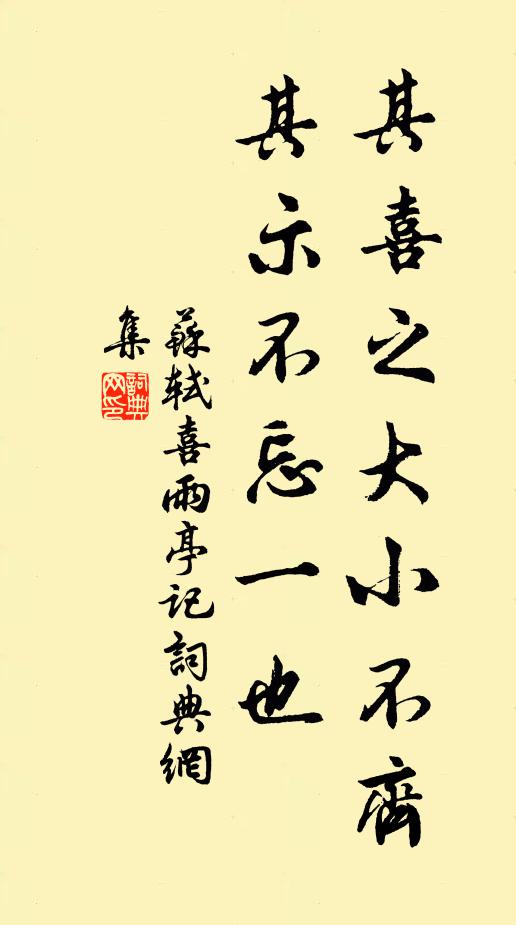 其喜之大小不齊
其示不忘一也
蘇軾喜雨亭記詞典網
集
詞典网印